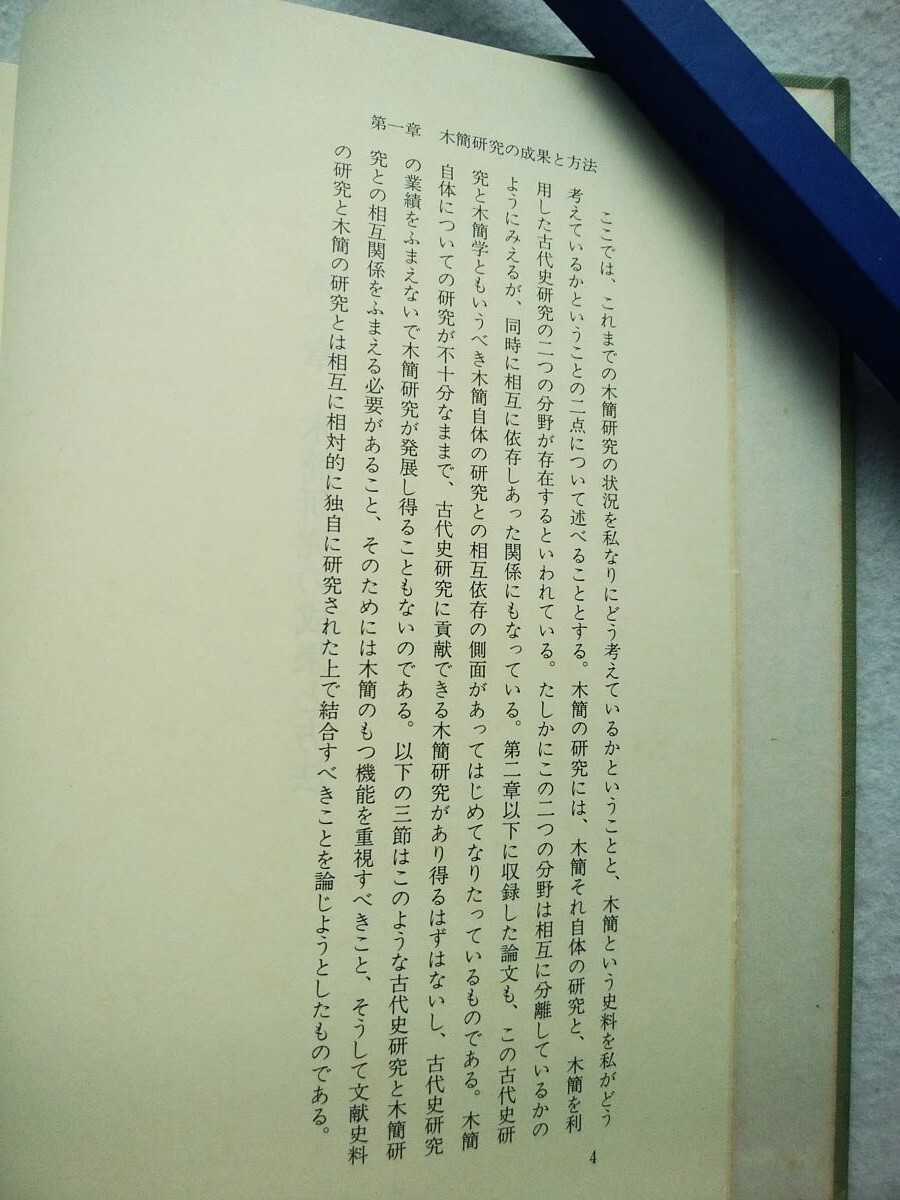 第一章 木簡研究の成果と方法
ここでは、これまでの木簡研究の状況を私なりにどう考えているかということと、木簡という史料を私がどう
考えているかということの二点について述べることとする。木簡の研究には、木簡それ自体の研究と、木簡を利
用した古代史研究の二つの分野が存在するといわれている。たしかにこの二つの分野は相互に分離しているかの
ようにみえるが、同時に相互に依存しあった関係にもなっている。第二章以下に収録した論文も、この古代史研
究と木簡学ともいうべき木簡自体の研究との相互依存の側面があってはじめてなりたっているものである。木簡
自体についての研究が不十分なままで、古代史研究に貢献できる木簡研究があり得るはずはないし、古代史研究
の業績をふまえないで木簡研究が発展し得ることもないのである。以下の三節はこのような古代史研究と木簡研
究との相互関係をふまえる必要があること、そのためには木簡のもつ機能を重視すべきこと、そうして文献史料
の研究と木簡の研究とは相互に相対的に独自に研究された上で結合すべきことを論じようとしたものである。
4